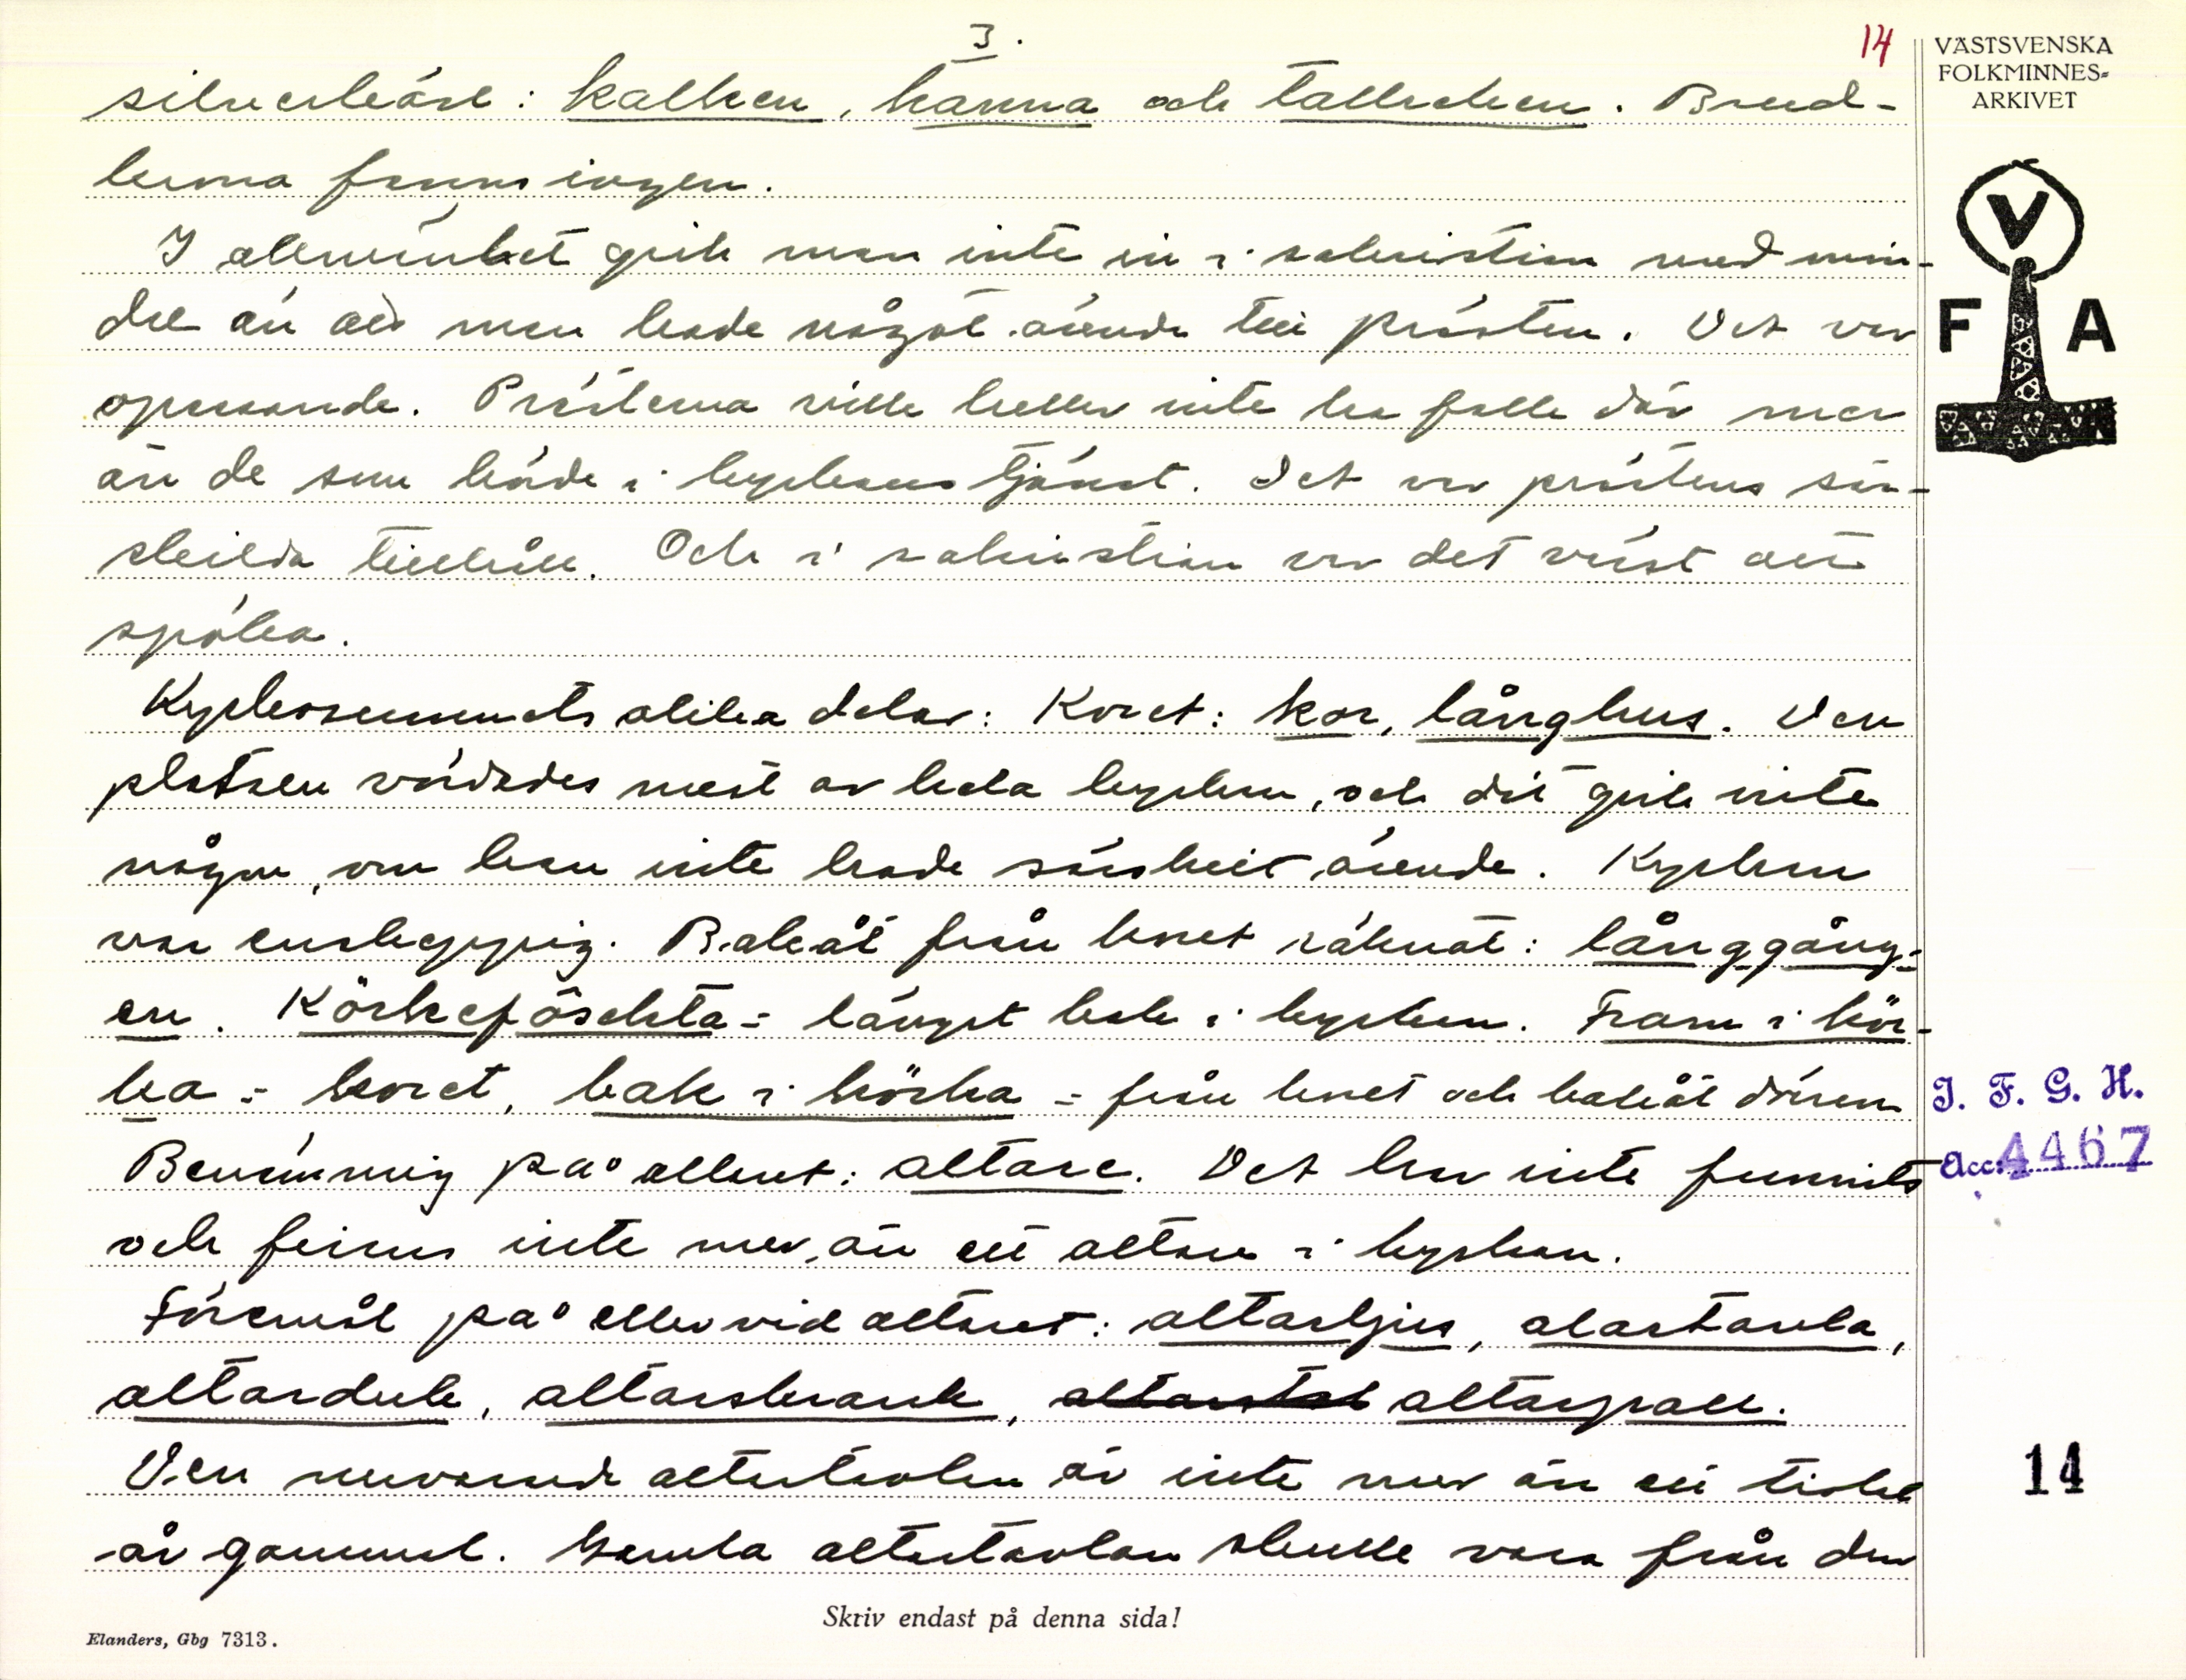 3.
14
VÄSTSVENSKA
FOLKMINNES-
ARKIVET
silverkärl: kalken, kanna och tallricken. Brud-
krona fanns ingen.
V
F A
I allmänhet gick man inte in i sakristian med min-
dre än att man hade något ärende till prästen. Det var
opassande. Prästerna ville heller inte ha folk där mer
än de som hörde i kyrkans tjänst. Det var prästens sär-
skilda tillhåll. Och i sakristian var det visst att
spöka.
Kyrkorummets olika delar: Koret: kor, långhus. Den
platsen vördades mest av hela kyrkan, och dit gick inte
någon, om han inte hade särskilt ärende. Kyrkan
var enskeppig. Bakåt från koret räknat: långgång-
en. Körkeföschta = längst bak i kyrkan. Fram i kör-
ka = koret, bak i körka = från koret och bakåt dörren
Benämning på altaret: altare. Det har inte funnits
och finns inte mer än ett altare i kyrkan.
Föremål på eller vid altaret: altarljus, alartavla,
altarduk, altarskrank, altarpall.
Den nuvarande altartavlan är inte mer än ett tiotal
år gammal. Gamla altartavlan skulle vara från den
I. F. G. H.
Acc. 4467
14
Skriv endast på denna sida!
Elanders, Gbg 7313.